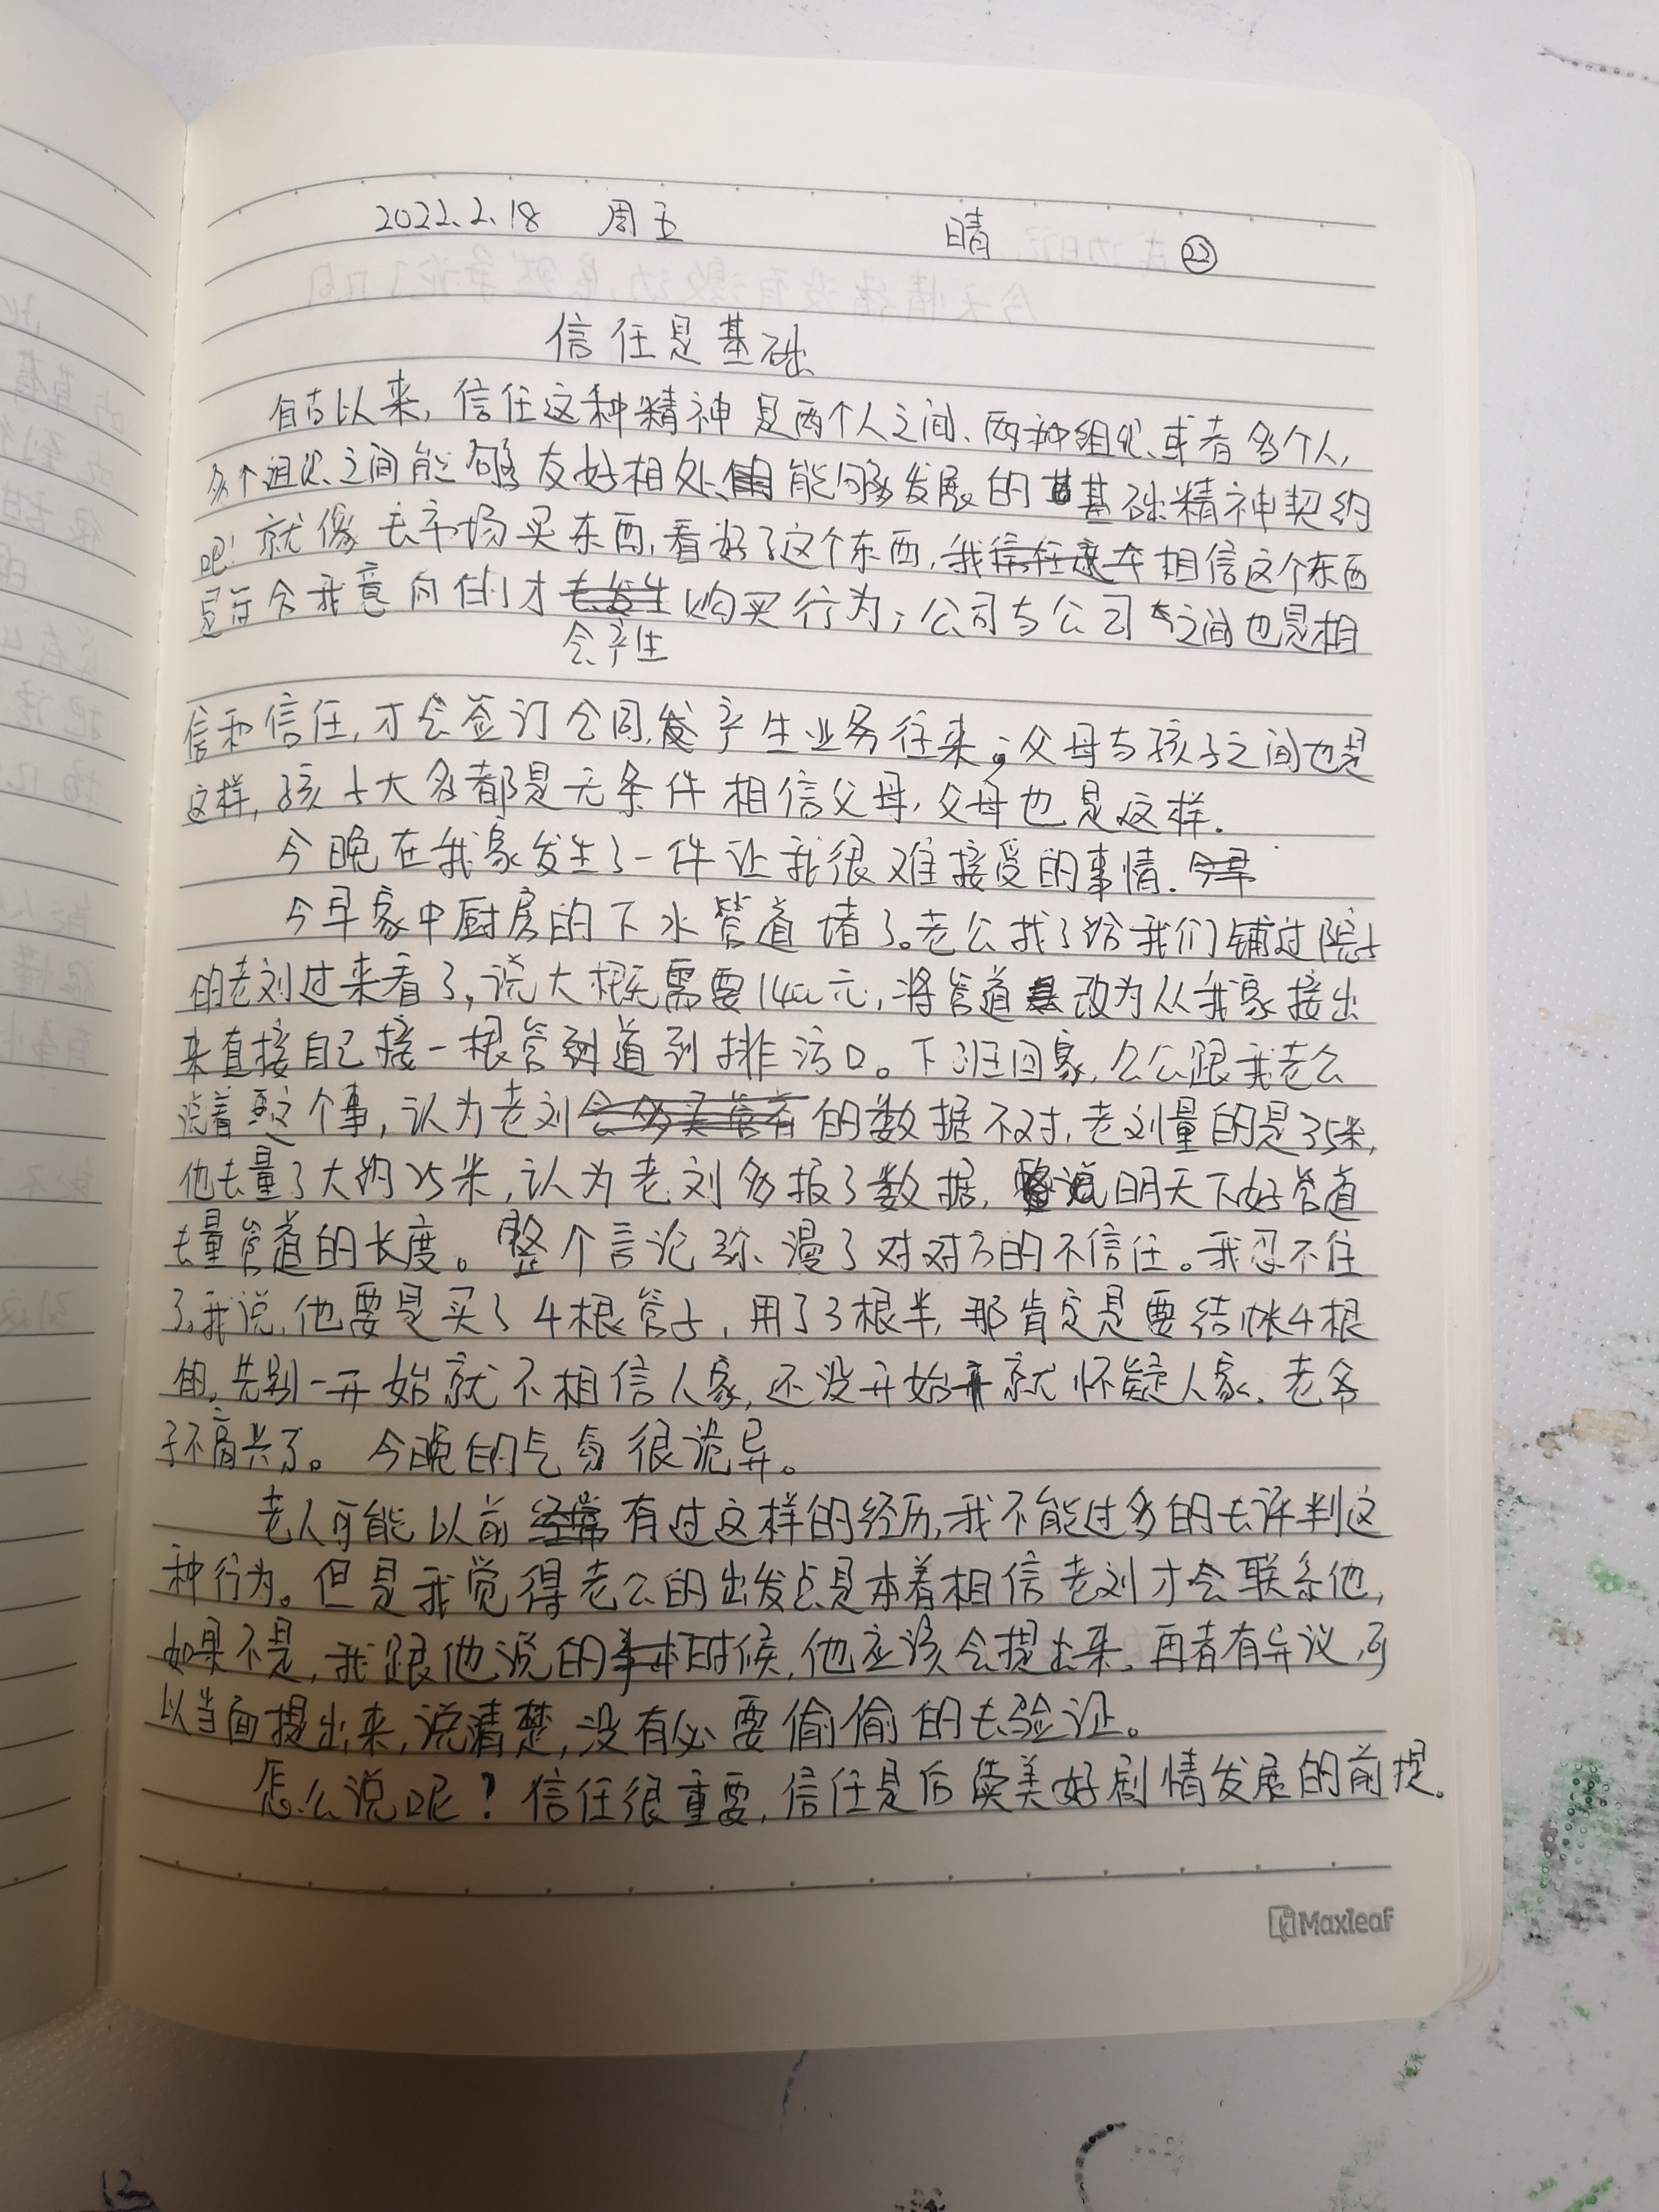 2022.2.18 周五 晴 ㉒
信任是基础
自古以来，信任这种精神是两个人之间、两种组织、或者多个人，
多个组织之间能够友好相处、能够发展的基础精神契约
吧！就像去市场买东西，看好了这个东西，我相信这个东西
是符合我意向的才会产生购买行为；公司与公司之间也是相
信和信任，才会签订合同，产生业务往来；父母与孩子之间也是
这样，孩子大多都是无条件相信父母，父母也是这样.
今晚在我家发生了一件让我很难接受的事情.
今早家中厨房的下水管道堵了。老公找了给我们铺过院子
的老刘过来看了，说大概需要1400元，将管道改为从我家接出
来直接自己接一根管道到排污口。下班回家，公公跟我老公
说着这个事，认为老刘的数据不对，老刘量的是35米，
他去量了大约25米，认为老刘多报了数据，说明天下好管道
去量管道的长度。整个言论弥漫了对对方的不信任。我忍不住
了，我说，他要是买了4根管子，用了3根半，那肯定是要结帐4根
的，先别一开始就不相信人家，还没开始就怀疑人家、老爷
子不高兴了。今晚的气氛很诡异。
老人可能以前有过这样的经历，我不能过多的去评判这
种行为。但是我觉得老公的出发点是本着相信老刘才会联系他，
如果不是，我跟他说的时候，他应该会提出来，再者有异议，可
以当面提出来，说清楚，没有必要偷偷的去验证。
怎么说呢？信任很重要，信任是后续美好剧情发展的前提。
Maxleaf